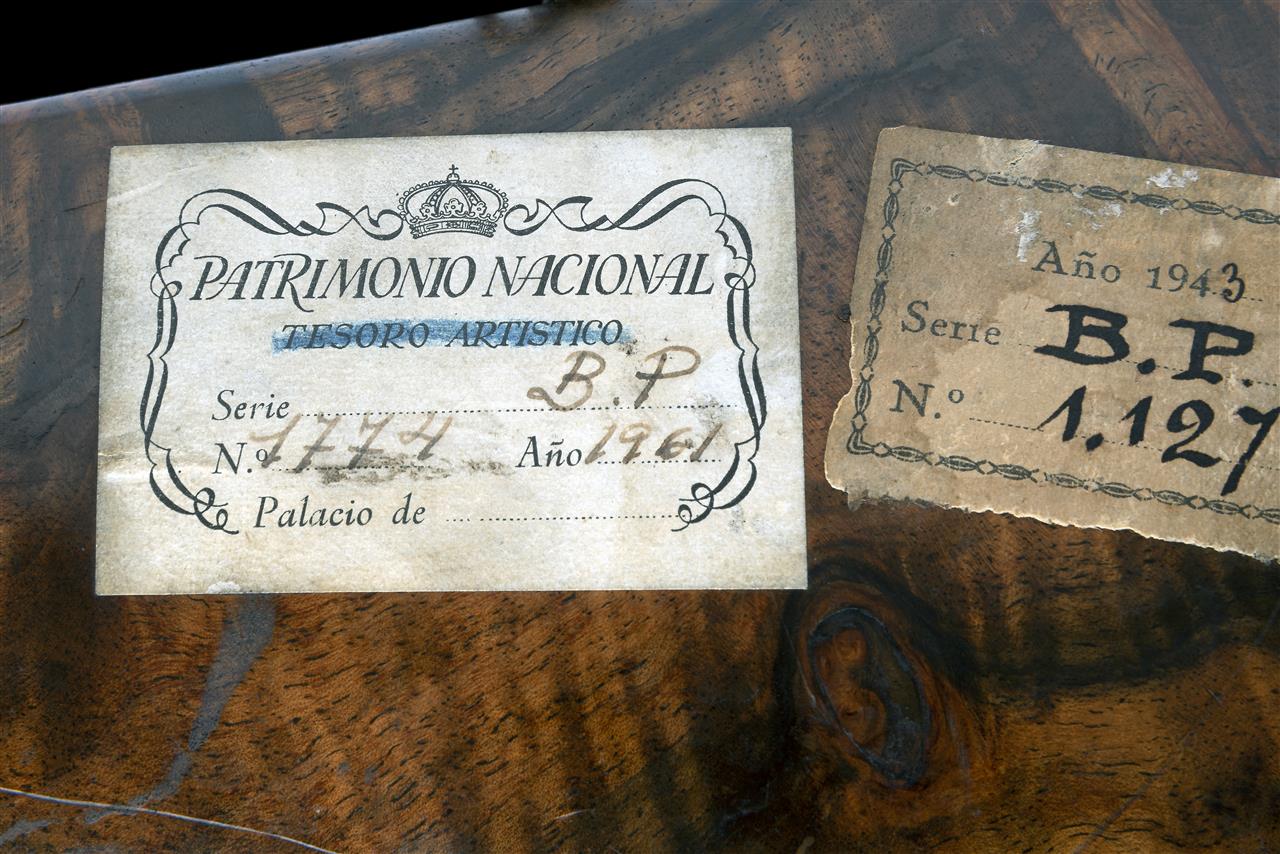 PATRIMONIO NACIONAL
TESORO ARTISTICO
Serie B.P
N.º 1774 Año 1961
Palacio de
Año 1943
Serie B.P.
N.º 1.127